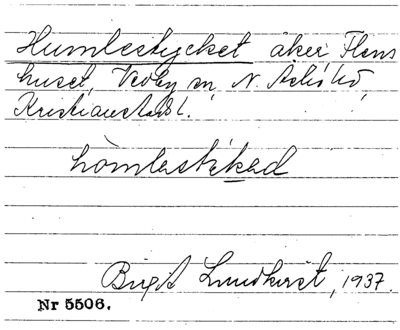 Humlestycket åker Flens
huset, Vedby sn, N. Åsbo hd,
Kristianstads l.
hòmlastỳkəd
Birgit Lundkvist, 1937.
Nr 5506.